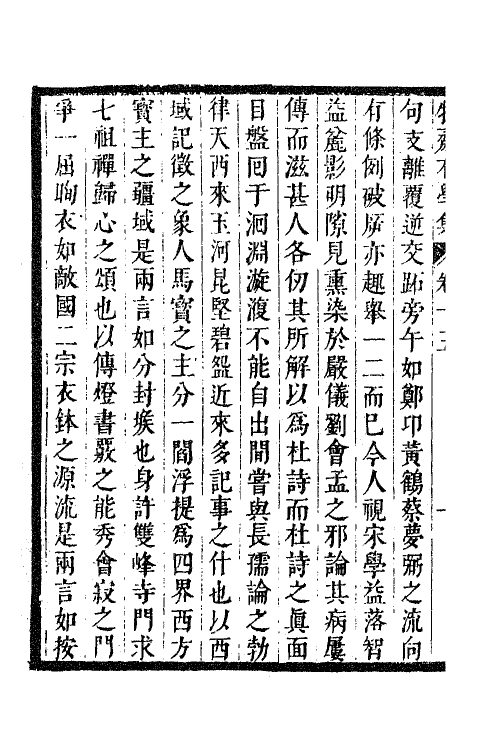 句支離覆逆交跖旁午如鄭卬黃鶴蔡夢弼之流向
有條例破屏亦趣舉一二而已今人視宋學益落智
益麄影明隙見熏染於嚴儀劉會孟之邪論其病屢
傳而滋甚人各仞其所解以爲杜詩而杜詩之眞面
目盤囘于洄淵漩澓不能自出閒嘗與長孺論之勃
律天西來玉河昆堅碧盌近來多記事之什也以西
域記徵之象人馬寶之主分一閻浮提爲四界西方
寶主之疆域是兩言如分封堠也身許雙峰寺門求
七祖禪歸心之頌也以傳燈書覈之能秀會寂之門
爭一屈眴衣如敵國二宗衣鉢之源流是兩言如按